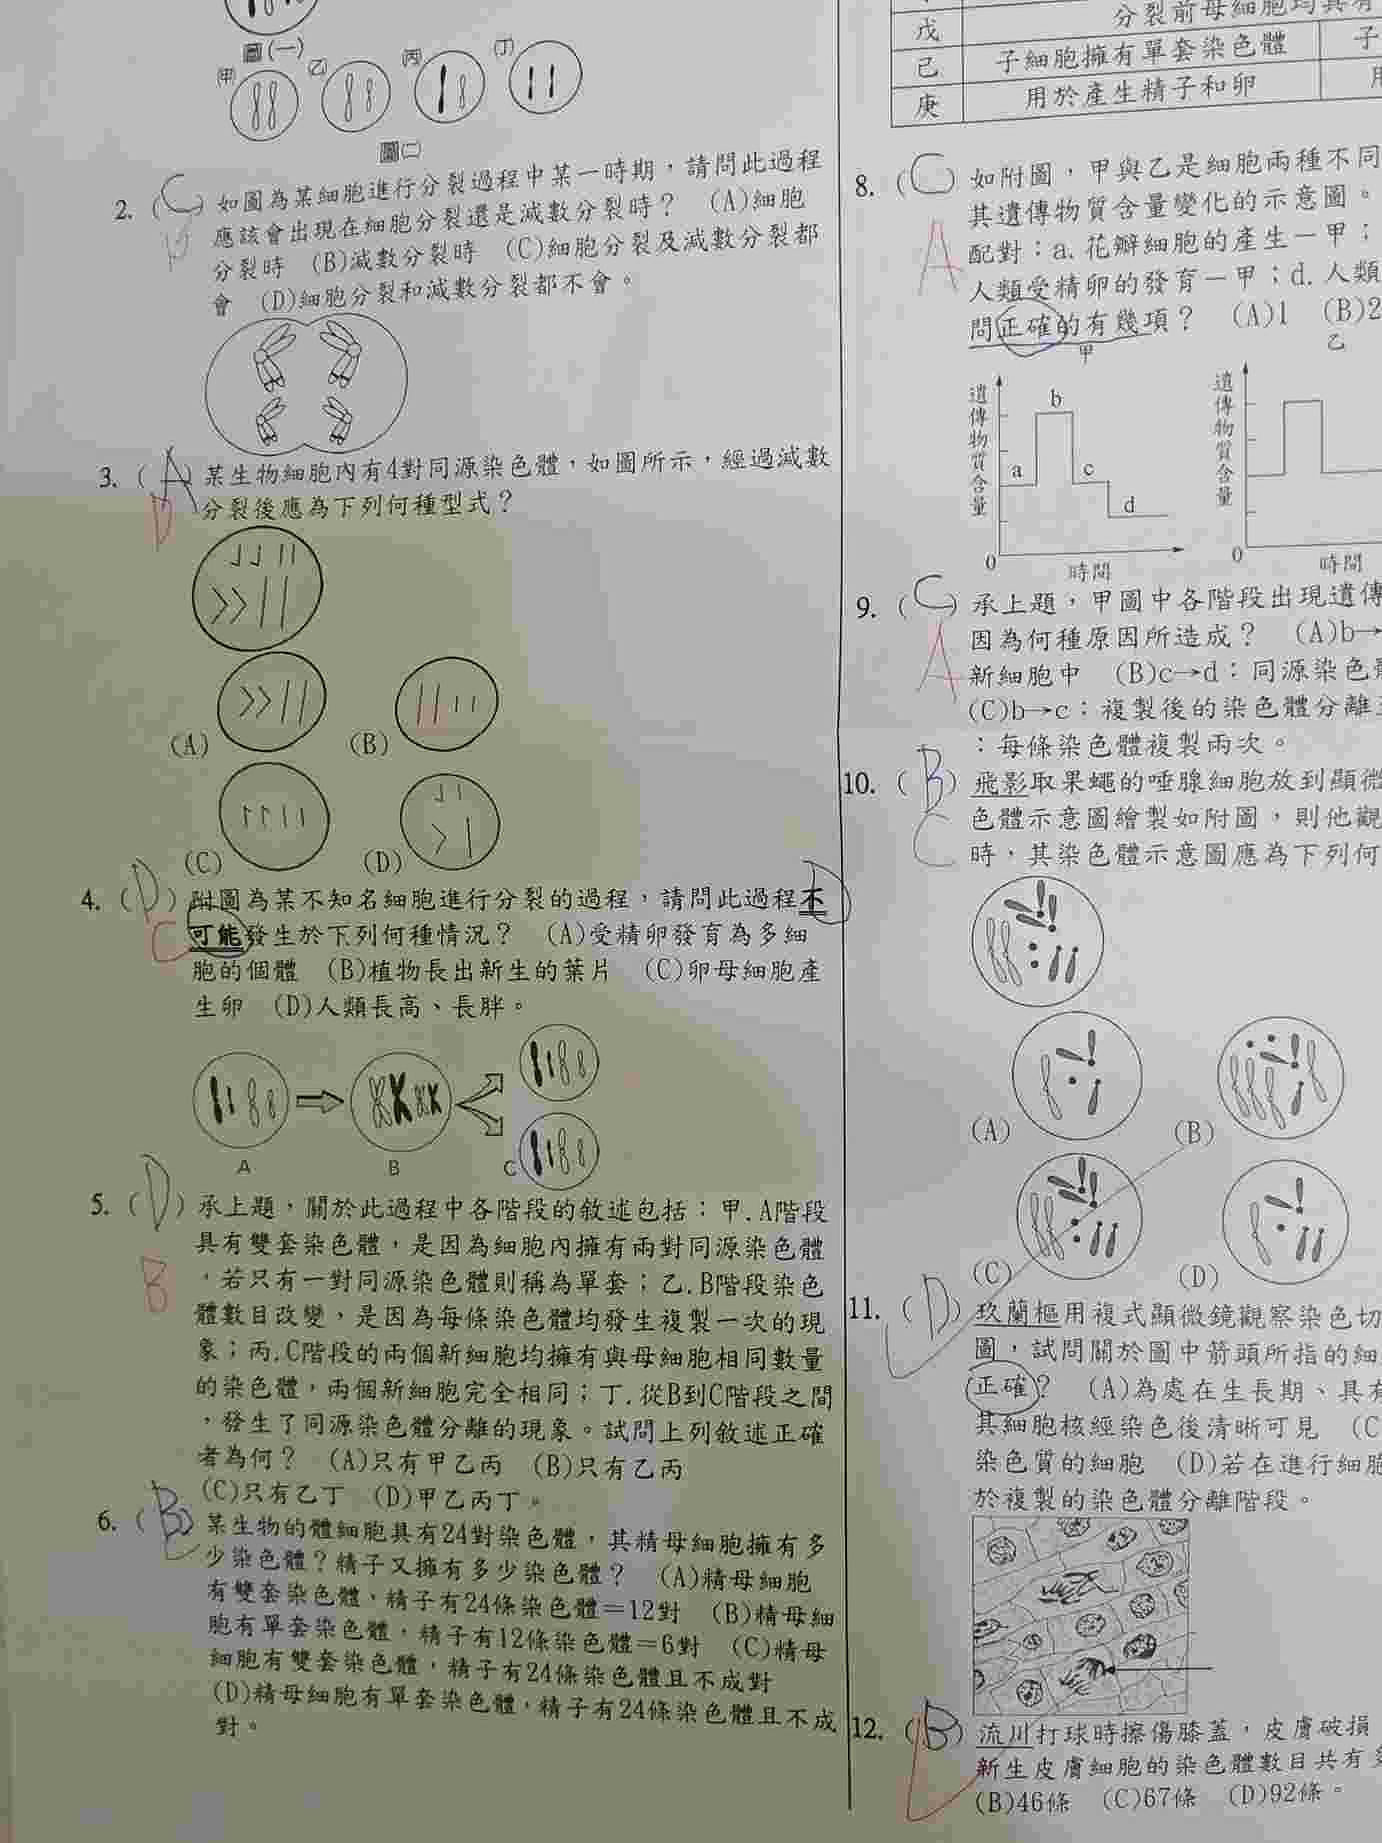 圖(一)
甲 乙 丙 丁
圖(二)
2. (C) 如圖為某細胞進行分裂過程中某一時期，請問此過程
應該會出現在細胞分裂還是減數分裂時？ (A)細胞
分裂時 (B)減數分裂時 (C)細胞分裂及減數分裂都
會 (D)細胞分裂和減數分裂都不會。
3. (A) 某生物細胞內有4對同源染色體，如圖所示，經過減數
D
分裂後應為下列何種型式？
(A) (B)
(C) (D)
4. (D) 附圖為某不知名細胞進行分裂的過程，請問此過程不
C
可能發生於下列何種情況？ (A)受精卵發育為多細
胞的個體 (B)植物長出新生的葉片 (C)卵母細胞產
生卵 (D)人類長高、長胖。
A B C
5. (D) 承上題，關於此過程中各階段的敘述包括：甲.A階段
具有雙套染色體，是因為細胞內擁有兩對同源染色體
B
，若只有一對同源染色體則稱為單套；乙.B階段染色
體數目改變，是因為每條染色體均發生複製一次的現
象；丙.C階段的兩個新細胞均擁有與母細胞相同數量
的染色體，兩個新細胞完全相同；丁.從B到C階段之間
，發生了同源染色體分離的現象。試問上列敘述正確
者為何？ (A)只有甲乙丙 (B)只有乙丙
(C)只有乙丁 (D)甲乙丙丁。
6. (B) 某生物的體細胞具有24對染色體，其精母細胞擁有多
少染色體？精子又擁有多少染色體？ (A)精母細胞
有雙套染色體，精子有24條染色體＝12對 (B)精母細
胞有單套染色體，精子有12條染色體＝6對 (C)精母
細胞有雙套染色體，精子有24條染色體且不成對
(D)精母細胞有單套染色體，精子有24條染色體且不成
對。
戊 分裂前母細胞均具有
己 子細胞擁有單套染色體 子
庚 用於產生精子和卵 用
8. (C) 如附圖，甲與乙是細胞兩種不同
其遺傳物質含量變化的示意圖。
A
配對：a.花瓣細胞的產生－甲；
人類受精卵的發育－甲；d.人類
問正確的有幾項？ (A)1 (B)2
甲 乙
遺傳物質含量 a b c d 0 時間
遺傳物質含量 0 時間
9. (C) 承上題，甲圖中各階段出現遺傳
因為何種原因所造成？ (A)b→
A
新細胞中 (B)c→d：同源染色體
(C)b→c：複製後的染色體分離至
：每條染色體複製兩次。
10. (B) 飛影取果蠅的唾腺細胞放到顯微
色體示意圖繪製如附圖，則他觀
C
時，其染色體示意圖應為下列何
(A) (B)
(C) (D)
11. (D) 玖蘭樞用複式顯微鏡觀察染色切
圖，試問關於圖中箭頭所指的細
正確？ (A)為處在生長期、具有
其細胞核經染色後清晰可見 (C
染色質的細胞 (D)若在進行細胞
於複製的染色體分離階段。
12. (B) 流川打球時擦傷膝蓋，皮膚破損
新生皮膚細胞的染色體數目共有多
(B)46條 (C)67條 (D)92條。